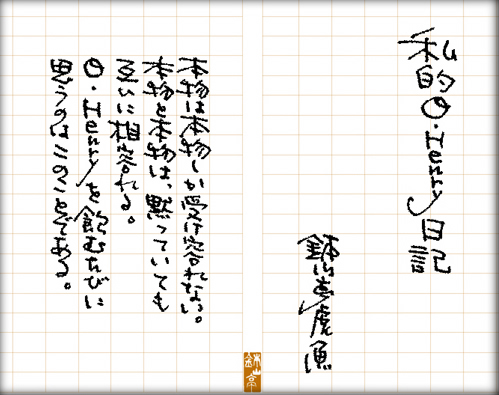 私的O・Henry日記
鉢山亭虎魚
本物は本物しか受け容れない。
本物と本物は、黙っていても
互いに相容れる。
O・Henryを飲むたびに
思うのはこのことである。
鉢山亭